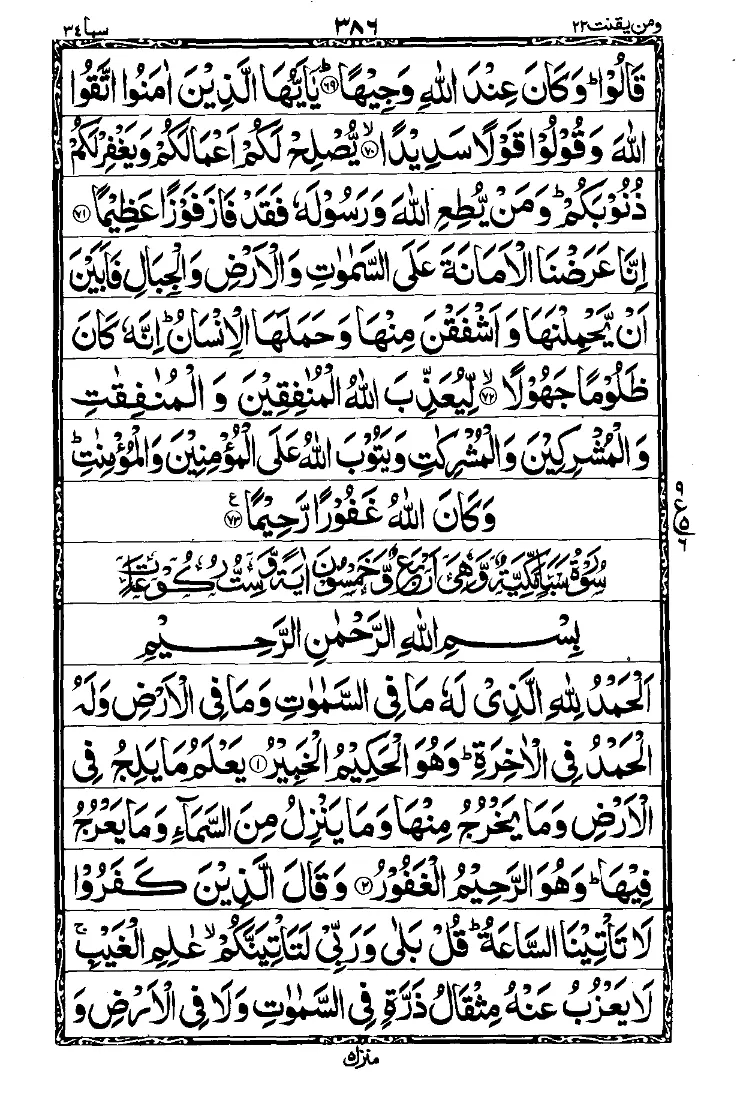 ومن یقنت ۲۲ ۳۸۶ سبا ۳٤
قَالُوْا ؕ وَكَانَ عِنْدَ اللّٰهِ وَجِيْهًا ؕ ﴿۶۹﴾ يٰۤاَيُّهَا الَّذِيْنَ اٰمَنُوا اتَّقُوا
اللّٰهَ وَقُوْلُوْا قَوْلًا سَدِيْدًا ۙ ﴿۷۰﴾ يُّصْلِحْ لَكُمْ اَعْمَالَكُمْ وَيَغْفِرْ لَكُمْ
ذُنُوْبَكُمْ ؕ وَمَنْ يُّطِعِ اللّٰهَ وَرَسُوْلَهٗ فَقَدْ فَازَ فَوْزًا عَظِيْمًا ﴿۷۱﴾
اِنَّا عَرَضْنَا الْاَمَانَةَ عَلَى السَّمٰوٰتِ وَالْاَرْضِ وَالْجِبَالِ فَاَبَيْنَ
اَنْ يَّحْمِلْنَهَا وَاَشْفَقْنَ مِنْهَا وَحَمَلَهَا الْاِنْسَانُ ؕ اِنَّهٗ كَانَ
ظَلُوْمًا جَهُوْلًا ۙ ﴿۷۲﴾ لِّيُعَذِّبَ اللّٰهُ الْمُنٰفِقِيْنَ وَ الْمُنٰفِقٰتِ
وَ الْمُشْرِكِيْنَ وَالْمُشْرِكٰتِ وَيَتُوْبَ اللّٰهُ عَلَى الْمُؤْمِنِيْنَ وَالْمُؤْمِنٰتِ ؕ
وَكَانَ اللّٰهُ غَفُوْرًا رَّحِيْمًا ﴿۷۳﴾ ع
۹ ع ۵ ۶
سُوْرَةُ سَبَاٍ مَّكِّيَّةٌ وَّهِيَ اَرْبَعٌ وَّخَمْسُوْنَ اٰيَةً وَّسِتُّ رُكُوْعَاتٍ
بِسْمِ اللّٰهِ الرَّحْمٰنِ الرَّحِيْمِ
اَلْحَمْدُ لِلّٰهِ الَّذِيْ لَهٗ مَا فِي السَّمٰوٰتِ وَمَا فِي الْاَرْضِ وَلَهُ
الْحَمْدُ فِي الْاٰخِرَةِ ؕ وَهُوَ الْحَكِيْمُ الْخَبِيْرُ ﴿۱﴾ يَعْلَمُ مَا يَلِجُ فِي
الْاَرْضِ وَمَا يَخْرُجُ مِنْهَا وَمَا يَنْزِلُ مِنَ السَّمَآءِ وَمَا يَعْرُجُ
فِيْهَا ؕ وَهُوَ الرَّحِيْمُ الْغَفُوْرُ ﴿۲﴾ وَقَالَ الَّذِيْنَ كَفَرُوْا
لَا تَاْتِيْنَا السَّاعَةُ ؕ قُلْ بَلٰى وَرَبِّيْ لَتَاْتِيَنَّكُمْ ۙ عٰلِمِ الْغَيْبِ ۚ
لَا يَعْزُبُ عَنْهُ مِثْقَالُ ذَرَّةٍ فِي السَّمٰوٰتِ وَلَا فِي الْاَرْضِ وَ
منزل ۵